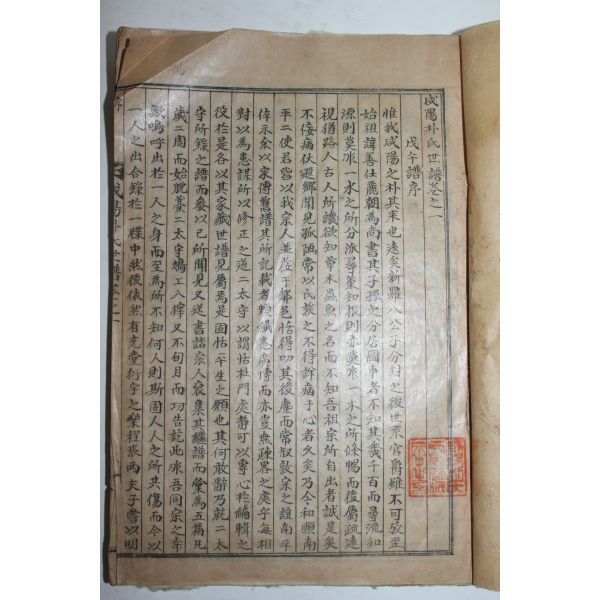 咸陽朴氏世譜卷之一
戊午譜序
惟我咸陽之朴其來也遠矣新羅八公子分封之後世系官爵雖不可攷至
始祖諱善仕麗朝為尚書其子孫之分居國中者不知其幾千百而尋流知
源則莫非一水之所分派尋葉知根則亦莫非一木之所條暢而後屬疏遠
視猶路人古人所譏欲知草木蟲魚之名而不知吾祖宗所自出者誠是矣
不佞病伏遐鄉聞見孤陋常以氏族之不得詳病于心者久矣乃今和順南
平二使君皆以我宗人並莅于鄰邑恬得叨其後塵而常叙敦宗之誼南平
倅示余以家傳舊譜其所記載者頗纖悉庶傳而亦豈無疎畧之處乎每相
對以為悉謀所以修正之道二太守以謂恬杜門處靜可以專心於編輯之
役於是各以其家藏世譜見屬焉是固恬平生之願也其何敢辭乃就二太
守所錄之譜而參以已所聞見又送書諸宗人裒集其編譜而彙為五篇凡
歲二周而始脫藁二太守鳩工入梓又不旬月而功告訖此非吾同宗之幸
歟嗚呼出於一人之身而至為所不知何人則斯固人人之所共傷而今以
一人之出合錄於一牒中然後依然有充堂衍宇之樂程張兩夫子嘗以明
咸陽朴氏世譜卷之一